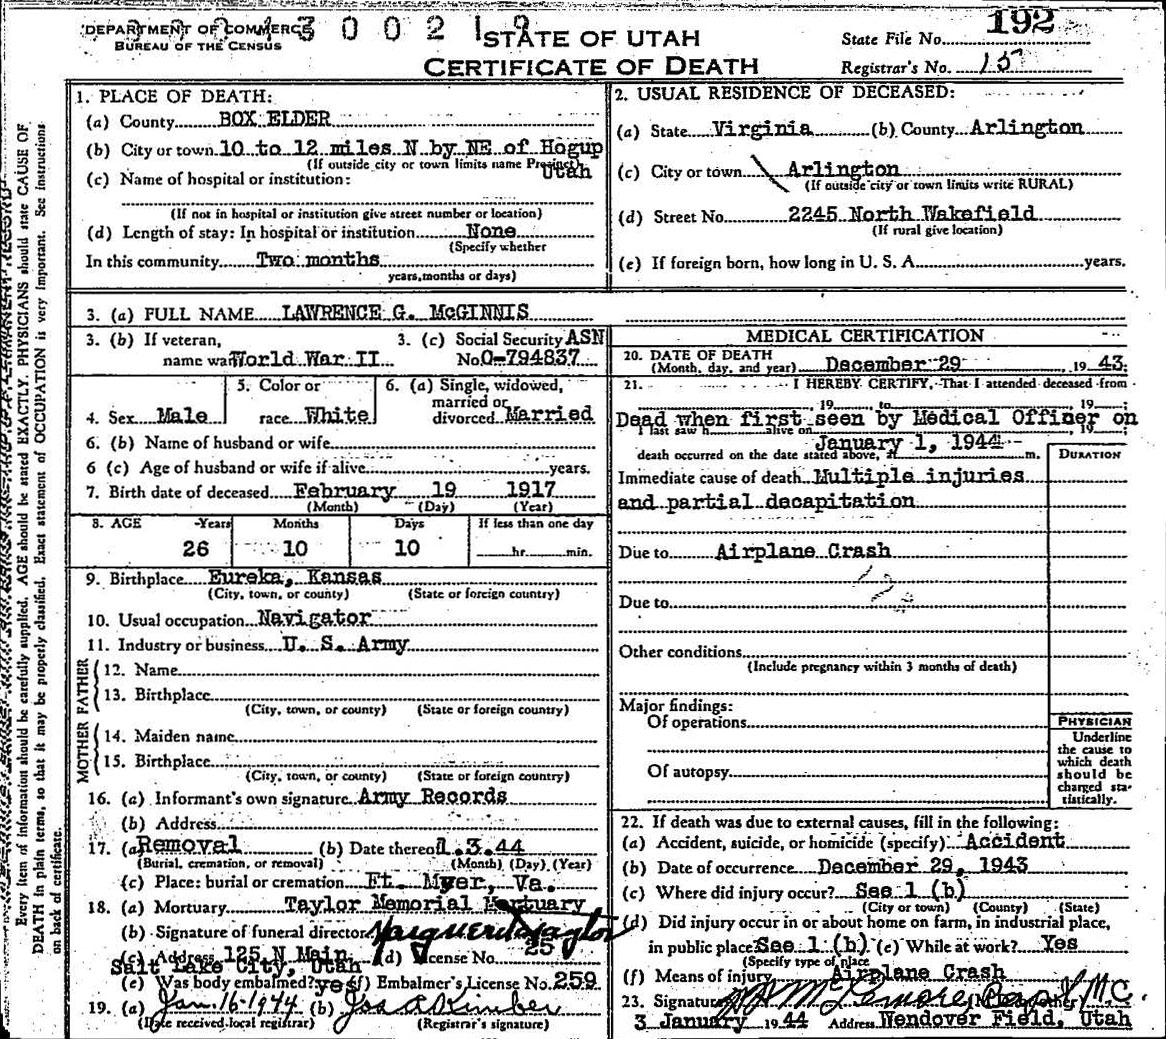 DEPARTMENT OF COMMERCE
BUREAU OF THE CENSUS
3 0 0 2 1 9
STATE OF UTAH
CERTIFICATE OF DEATH
State File No. 192
Registrar's No. 15
Every item of information should be carefully supplied. AGE should be stated EXACTLY. PHYSICIANS should state CAUSE OF
DEATH in plain terms, so that it may be properly classified. Exact statement of OCCUPATION is very important. See instructions
on back of certificate.
1. PLACE OF DEATH:
(a) County BOX ELDER
(b) City or town 10 to 12 miles N by NE of Hogup
(If outside city or town limits name Precinct) Utah
(c) Name of hospital or institution:
(If not in hospital or institution give street number or location)
(d) Length of stay: In hospital or institution None
(Specify whether
In this community Two months
years, months or days)
2. USUAL RESIDENCE OF DECEASED:
(a) State Virginia (b) County Arlington
(c) City or town Arlington
(If outside city or town limits write RURAL)
(d) Street No. 2245 North Wakefield
(If rural give location)
(e) If foreign born, how long in U. S. A. years.
3. (a) FULL NAME LAWRENCE G. McGINNIS
3. (b) If veteran, 3. (c) Social Security ASN
name war World War II No. O-794837
5. Color or 6. (a) Single, widowed,
married or
4. Sex Male race White divorced Married
6. (b) Name of husband or wife
6 (c) Age of husband or wife if alive years.
7. Birth date of deceased February 19 1917
(Month) (Day) (Year)
8. AGE Years Months Days If less than one day
26 10 10 hr. min.
9. Birthplace Eureka, Kansas
(City, town, or county) (State or foreign country)
10. Usual occupation Navigator
11. Industry or business U. S. Army
FATHER
12. Name
13. Birthplace
(City, town, or county) (State or foreign country)
MOTHER
14. Maiden name
15. Birthplace
(City, town, or county) (State or foreign country)
16. (a) Informant's own signature Army Records
(b) Address
17. (a) Removal (b) Date thereof 1.3.44
(Burial, cremation, or removal) (Month) (Day) (Year)
(c) Place: burial or cremation Ft. Myer, Va.
18. (a) Mortuary Taylor Memorial Mortuary
(b) Signature of funeral director Marguerite Taylor
(c) Address 125 N Main, (d) License No. 25
Salt Lake City, Utah
(e) Was body embalmed? yes (f) Embalmer's License No. 259
19. (a) Jan. 16-1944 (b) Jos A Kimber
(Date received local registrar) (Registrar's signature)
MEDICAL CERTIFICATION
20. DATE OF DEATH
(Month, day, and year) December 29 1943.
21. I HEREBY CERTIFY, That I attended deceased from
19 to 19 ;
Dead when first seen by Medical Officer on
I last saw h alive on , 19 ;
January 1, 1944
death occurred on the date stated above, at m.
DURATION
Immediate cause of death Multiple injuries
and partial decapitation
Due to Airplane Crash
Due to
Other conditions
(Include pregnancy within 3 months of death)
Major findings:
Of operations
Of autopsy
PHYSICIAN
Underline
the cause to
which death
should be
charged sta-
tistically.
22. If death was due to external causes, fill in the following:
(a) Accident, suicide, or homicide (specify) Accident
(b) Date of occurrence December 29, 1943
(c) Where did injury occur? See 1 (b)
(City or town) (County) (State)
(d) Did injury occur in or about home on farm, in industrial place,
in public place? See 1 (b) (e) While at work? Yes
(Specify type of place
(f) Means of injury Airplane Crash
23. Signature McLemore Capt MC.
3 January 1944 Address Wendover Field, Utah